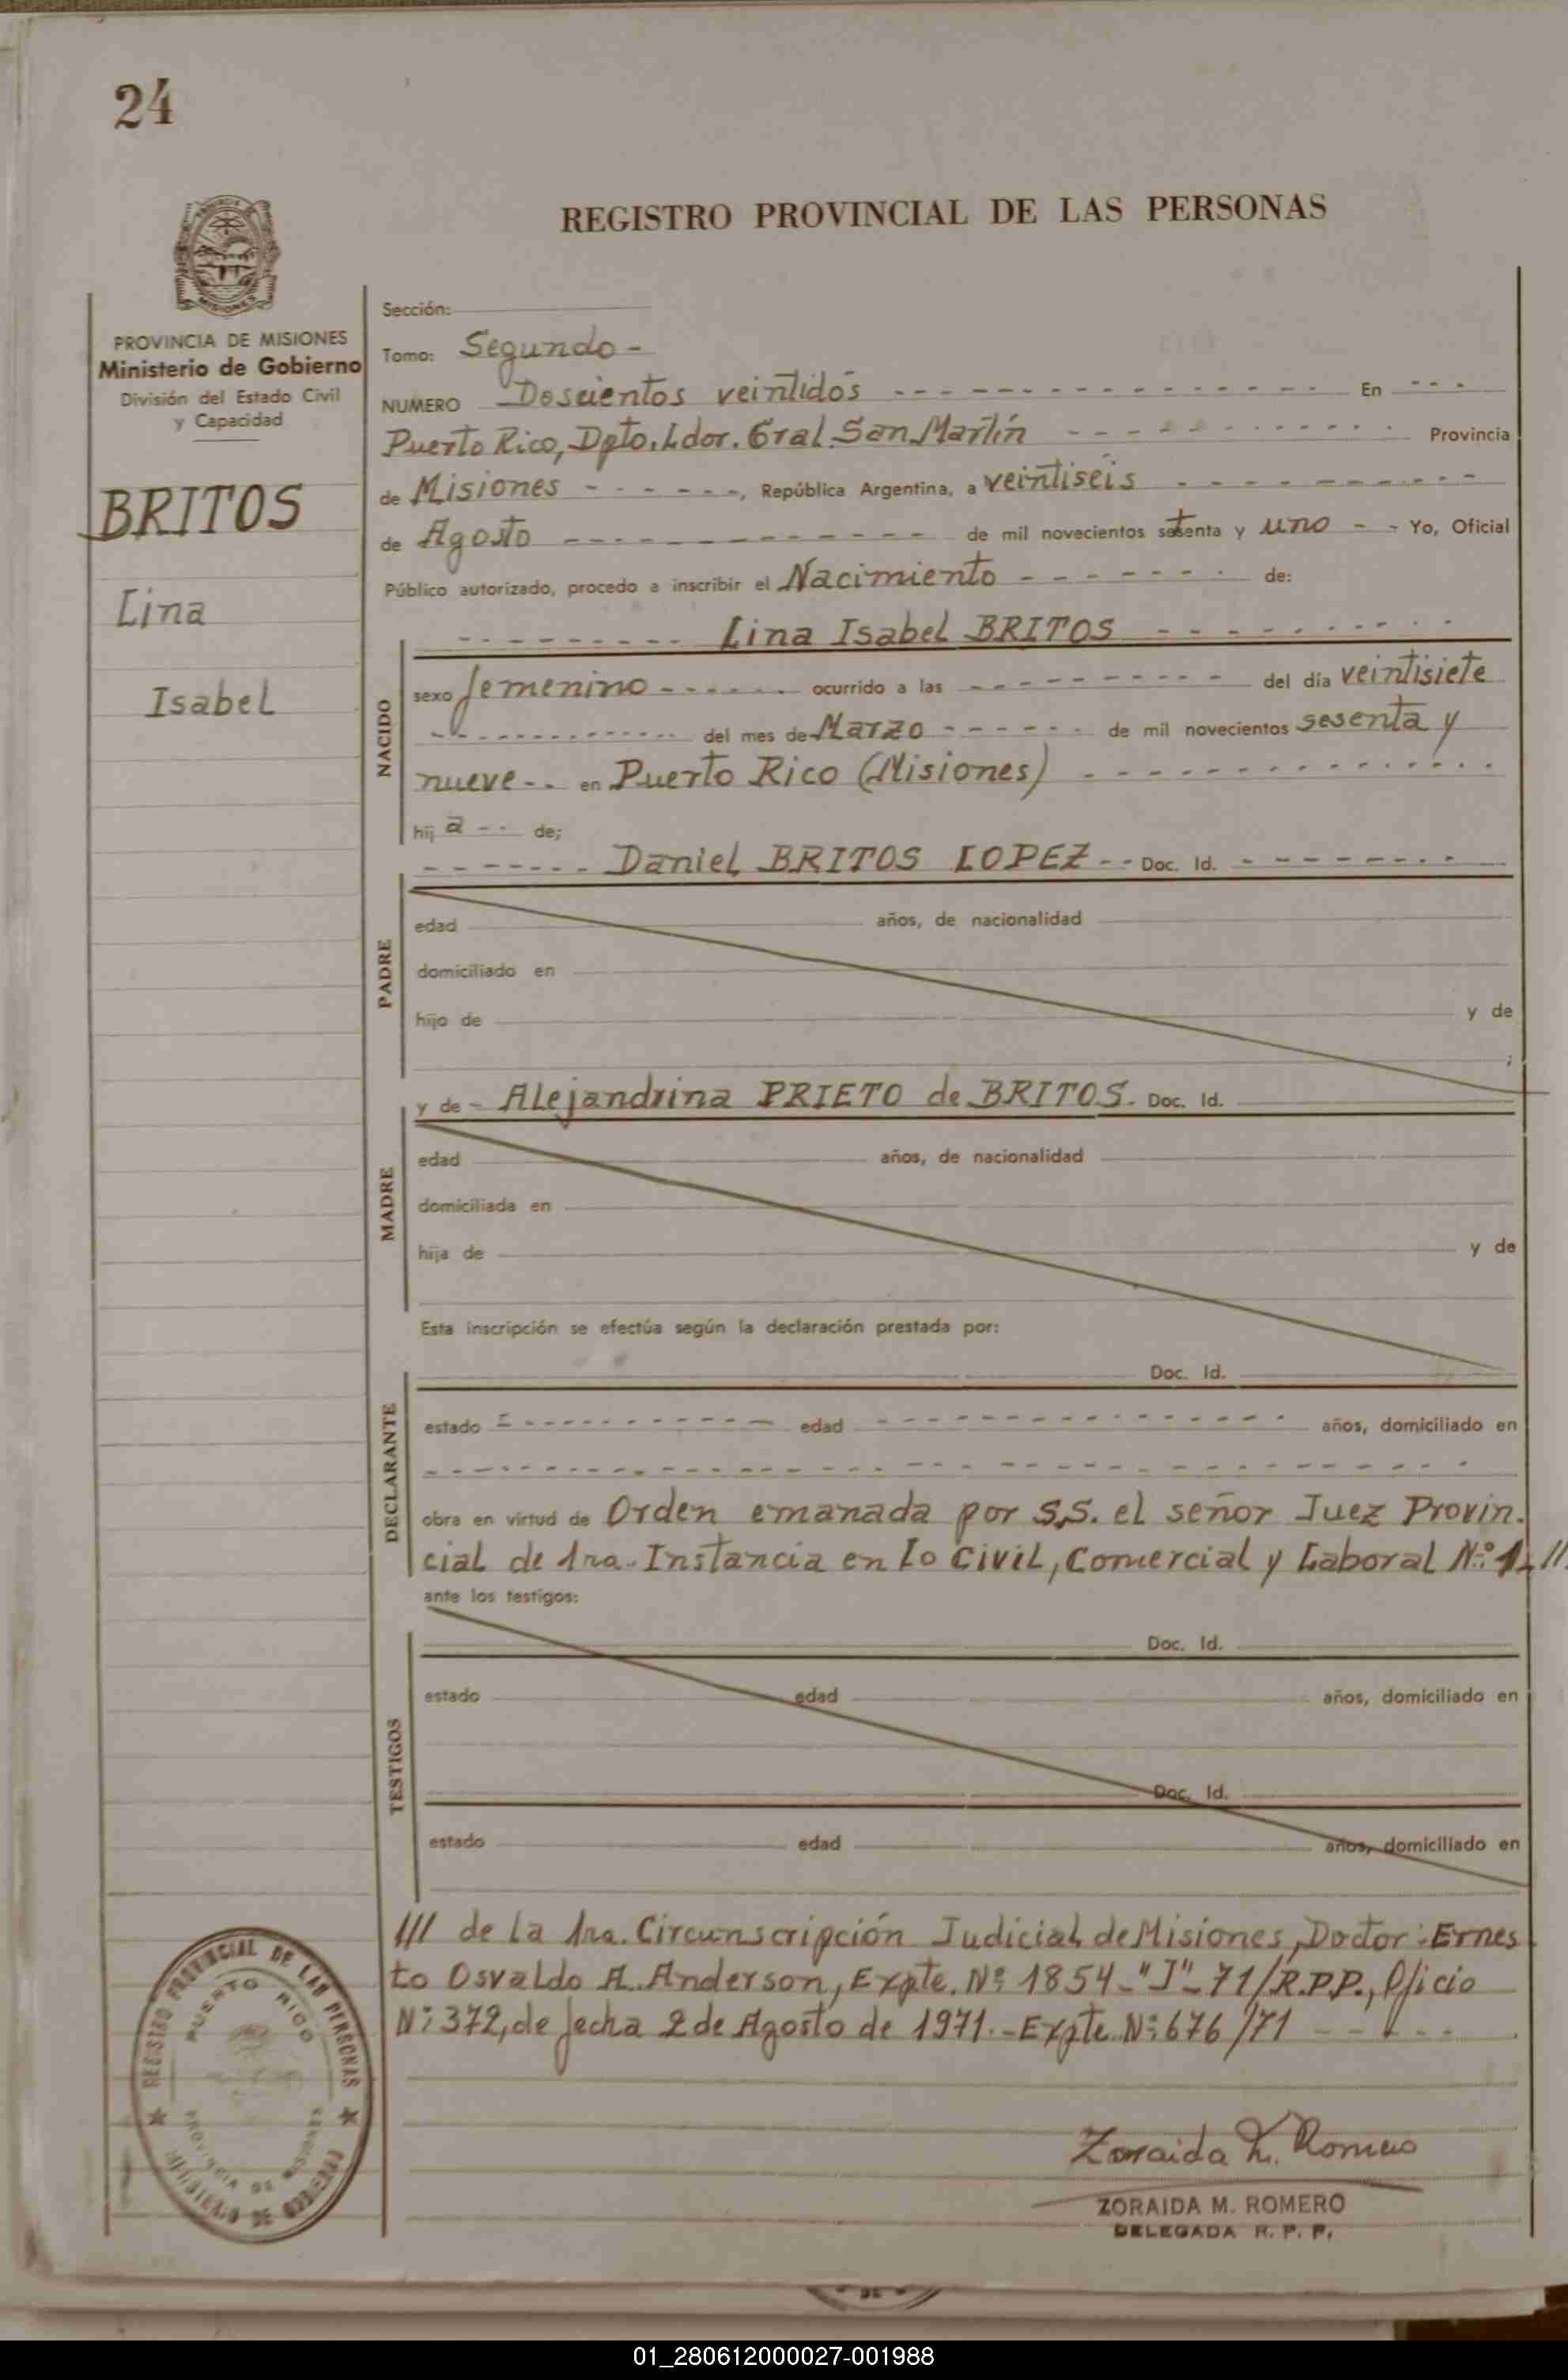 24
REGISTRO PROVINCIAL DE LAS PERSONAS
MISIONES
PROVINCIA DE MISIONES
Ministerio de Gobierno
División del Estado Civil
y Capacidad
BRITOS
Lina
Isabel
Sección:
Tomo: Segundo -
NUMERO Doscientos veintidós - - - En - - -
Puerto Rico, Dpto. Ldor. Gral. San Martín - - - Provincia
de Misiones - - -, República Argentina, a veintiseis - - -
de Agosto - - - de mil novecientos setenta y uno - - Yo, Oficial
Público autorizado, procedo a inscribir el Nacimiento - - - de:
- - - Lina Isabel BRITOS - - -
NACIDO
sexo femenino - - - ocurrido a las - - - del día veintisiete
- - - del mes de Marzo - - - de mil novecientos sesenta y
nueve - - en Puerto Rico (Misiones) - - -
hij a - - de;
- - - Daniel BRITOS LOPEZ - - Doc. Id. - - -
PADRE
edad años, de nacionalidad
domiciliado en
hijo de y de
;
y de - Alejandrina PRIETO de BRITOS. Doc. Id.
MADRE
edad años, de nacionalidad
domiciliada en
hija de y de
Esta inscripción se efectúa según la declaración prestada por:
Doc. Id.
DECLARANTE
estado - - - edad - - - años, domiciliado en
- - -
obra en virtud de Orden emanada por S.S. el señor Juez Provin.
cial de 1ra. Instancia en lo Civil, Comercial y Laboral Nº 1 - //
ante los testigos:
Doc. Id.
TESTIGOS
estado edad años, domiciliado en
Doc. Id.
estado edad años, domiciliado en
/// de la 1ra. Circunscripción Judicial de Misiones, Doctor: Ernes
to Osvaldo A. Anderson, Expte. Nº 1854-"J"-71/R.P.P., Oficio
Nº 372, de fecha 2 de Agosto de 1971.- Expte. Nº 676/71 - - -
REGISTRO PROVINCIAL DE LAS PERSONAS
PUERTO RICO
PROVINCIA DE MISIONES
MINISTERIO DE GOBIERNO
Zoraida M. Romero
ZORAIDA M. ROMERO
DELEGADA R. P. P.
01_280612000027-001988